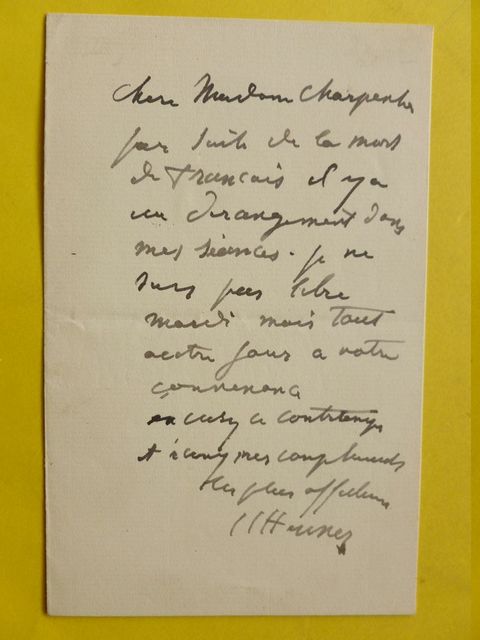 Chere Madame Charpentier
par suite de la mort
de Francais il y a
un derangement dans
mes séances. je ne
suis pas libre
mardi mais tout
autre jour a votre
convenance
excusez ce contretemps
et mes compliments
les plus affectueux
JJ Henner